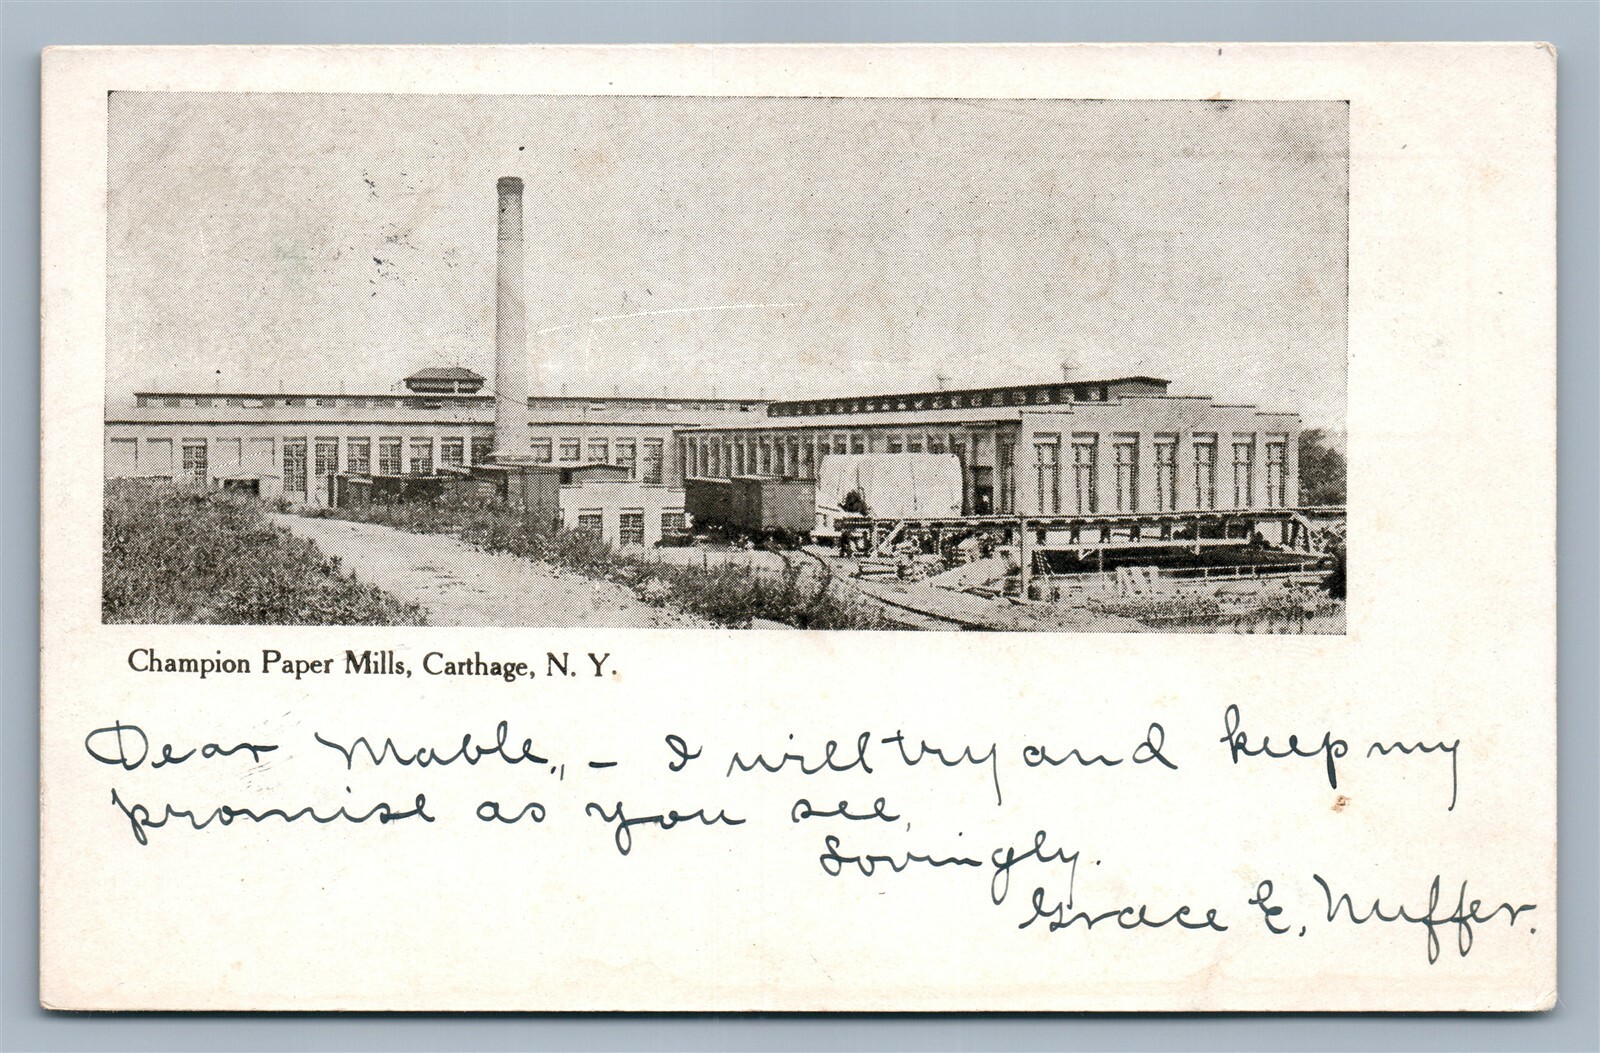 Champion Paper Mills, Carthage, N. Y.
Dear Mable,, – I will try and keep my
promise as you see,
Lovingly.
Grace E, Nuffer.